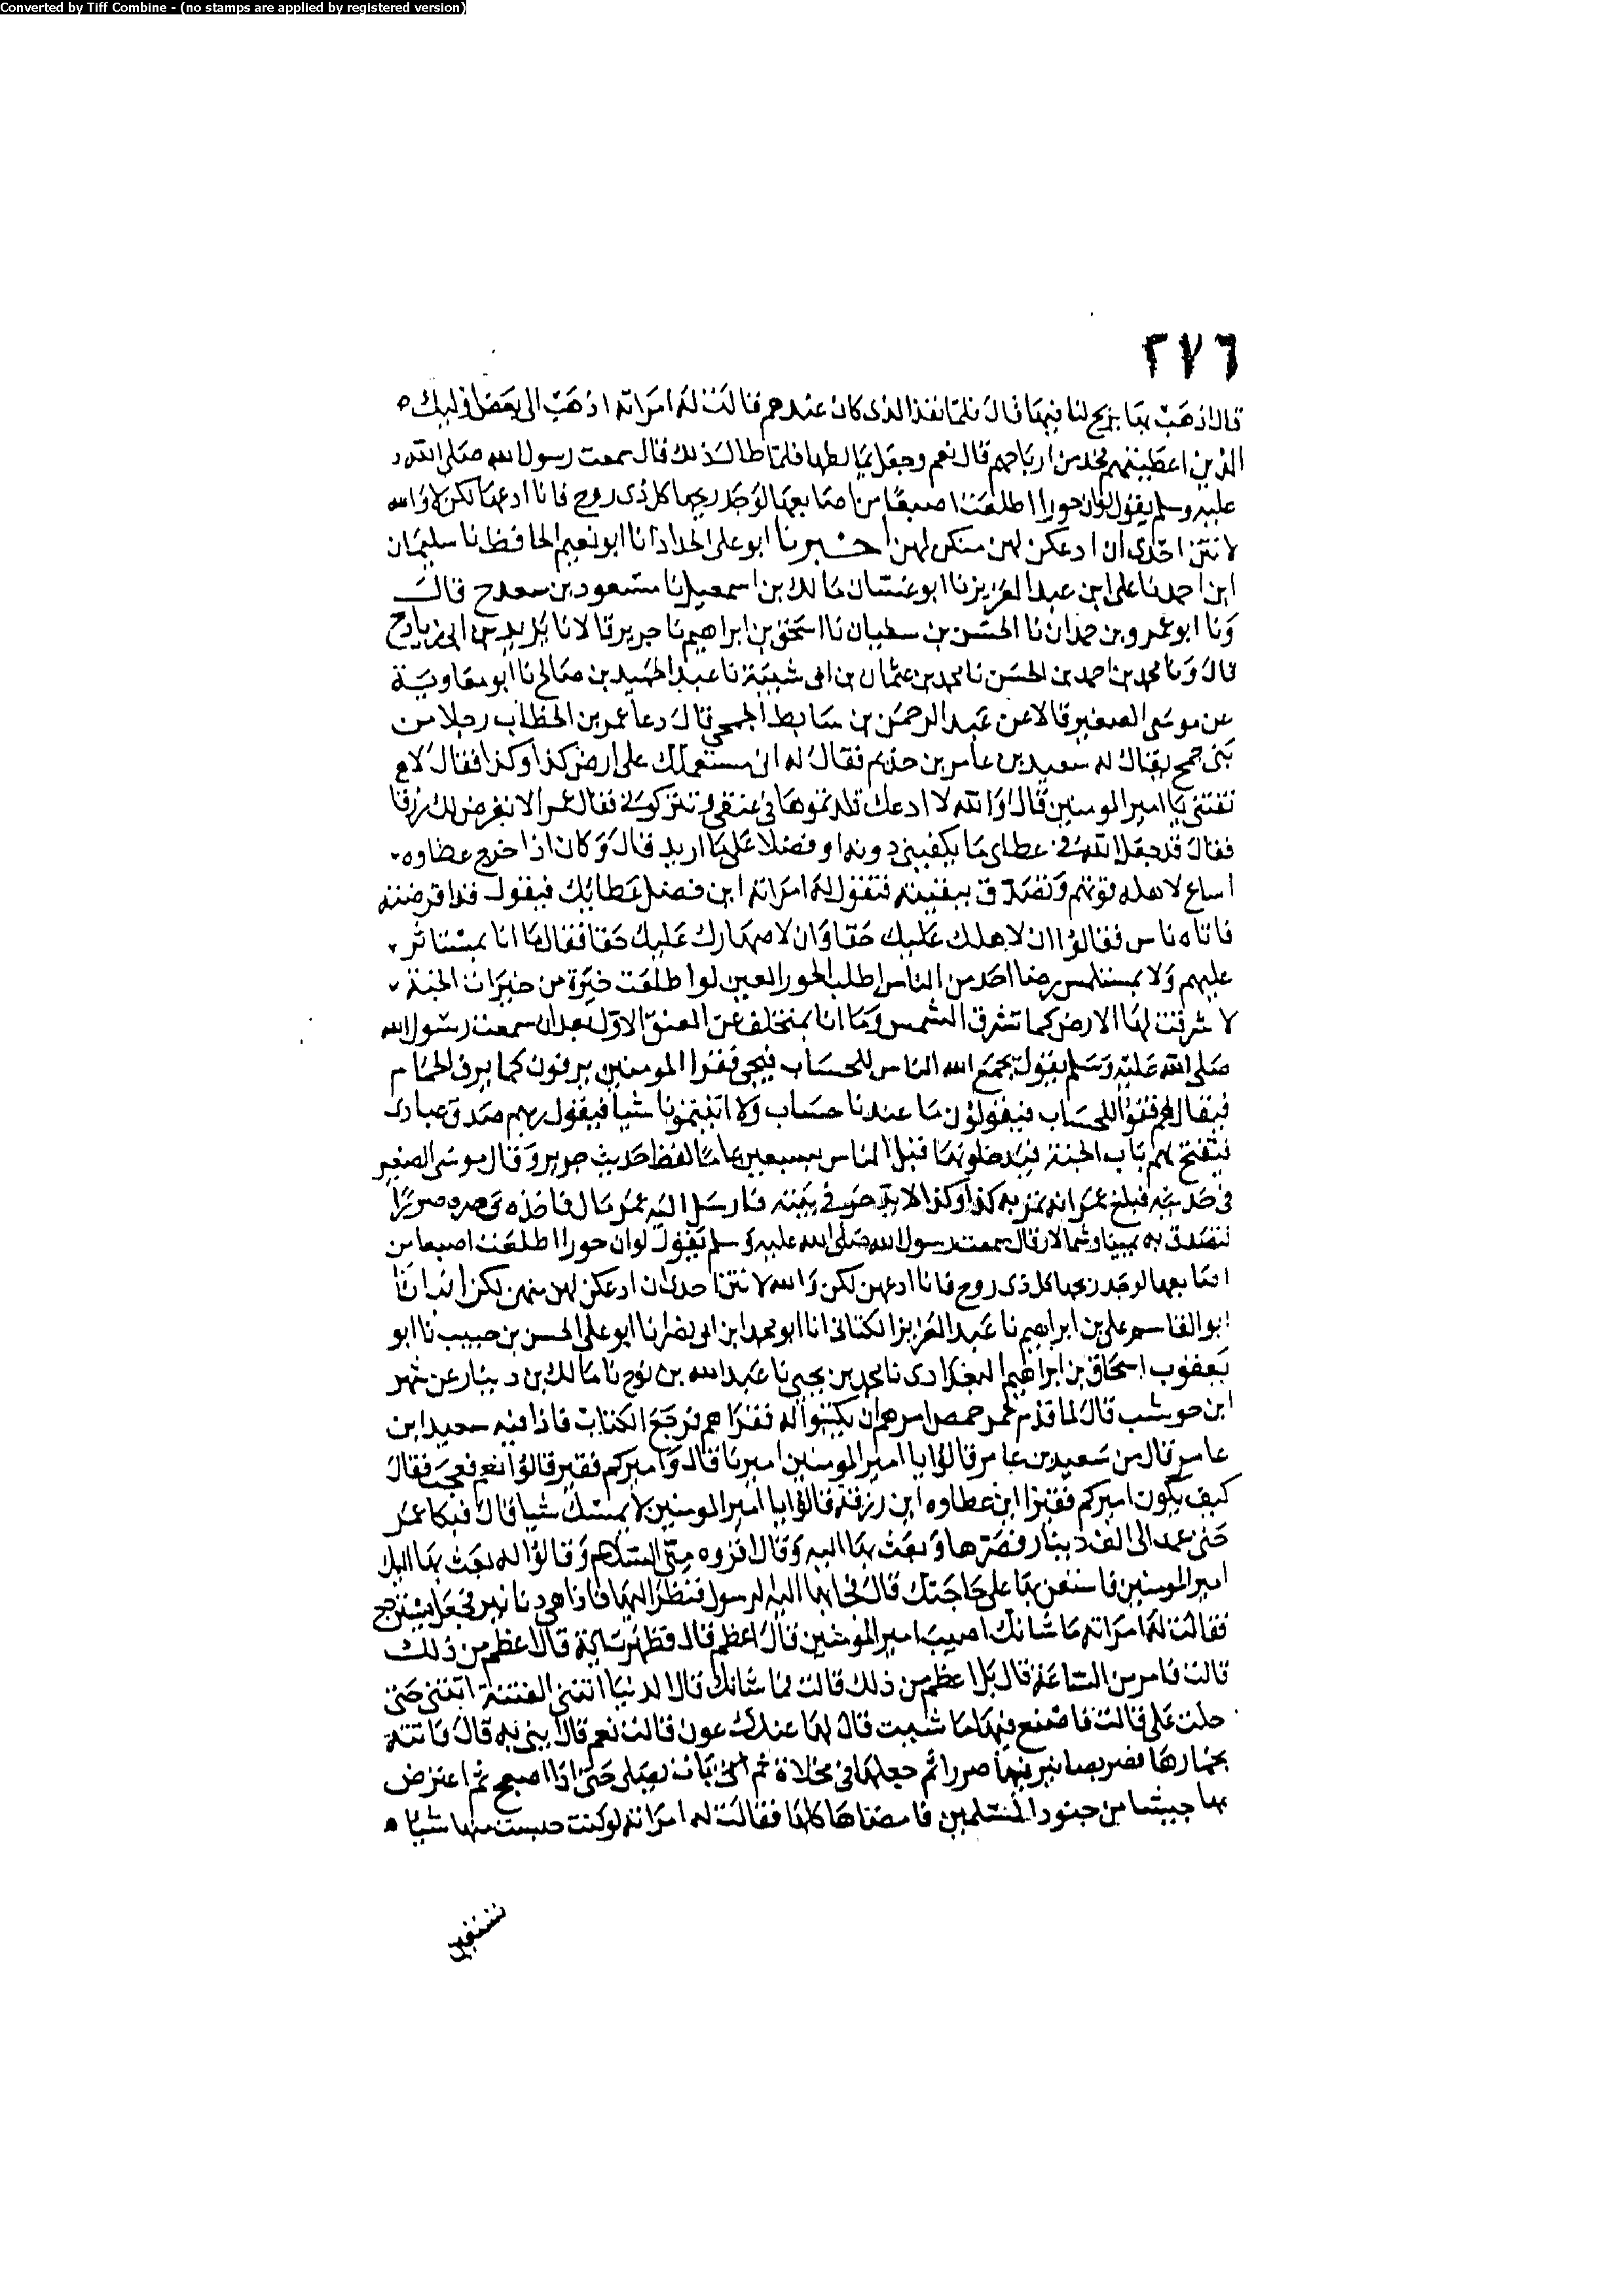 Converted by Tiff Combine - (no stamps are applied by registered version)
٢٧٦
قال اذهب بها يربح لنا فيها قال فلما نفذ الذى كان عندهم قالت له امراته اذهب الى بعض اوليك
الذين اعطيتهم فخذ من ارباحهم قال نعم وجعل يماطلها فلما طال ذلك قال سمعت رسول الله صلى الله
عليه وسلم يقول لوان حورا اطلعت اصبعا من اصابعها لوجد ريحها كل ذى روح فانا ادعها لكن لا والله
لانتن احرى ان ادعكن لهن منكن لهن اخبرنا ابو على الحداد انا ابو نعيم الحافظ نا سليمان
ابن احمد نا على ابن عبد العزيز نا ابو غسان مالك بن اسمعيل نا مسعود بن سعد ح قال
ونا ابو عمرو بن حمدان نا الحسن بن سفيان نا اسحق بن ابراهيم نا جرير قالا نا يزيد بن ابى زياد ح
قال ونا محمد بن احمد بن الحسن نا محمد بن عثمان بن ابى شيبة نا عبد الحميد بن صالح نا ابو معاوية
عن موسى الصغير قالا عن عبد الرحمن بن سابط الجمحى قال دعا عمر بن الخطاب رجلا من
بنى جمح يقال له سعيد بن عامر بن حذيم فقال له انى مستعملك على ارض كذا وكذا فقال لا
تفتنى يا امير المومنين قال والله لا ادعك قلدتموها فى عنقى وتتركونى فقال عمر الا نفرض لك رزقا
فقال قد جعل الله فى عطاى ما يكفينى دونه او فضلا على ما اريد قال وكان اذا خرج عطاوه
ابتاع لاهله قوتهم وتصدق ببقيته فتقول له امراته اين فضل عطايك فيقول قد اقرضته
فاتاه ناس فقالوا ان لاهلك عليك حقا وان لاصهارك عليك حقا فقال ما انا بمستاثر
عليهم ولا بملتمس رضا احد من الناس لطلب الحور العين لو اطلعت خيرة من خيرات الجنة
لاشرقت لها الارض كما تشرق الشمس وما انا بمتخلف عن العنق الاول بعد ان سمعت رسول الله
صلى الله عليه وسلم يقول يجمع الله الناس للحساب فيجى فقرا المومنين يزفون كما يزف الحمام
فيقال لهم قفوا للحساب فيقولون ما عندنا حساب ولا اتيتمونا شيا فيقول ربهم صدق عبادى
فيفتح لهم باب الجنة فيدخلونها قبل الناس بسبعين عاما لفظ حديث جرير وقال موسى الصغير
فى حديثه فبلغ عمر انه يمر به كذا وكذا لا يدخن فى بيته فارسل اليه عمر بمال فاخذه فصره صررا
فتصدق به يمينا وشمالا وقال سمعت رسول الله صلى الله عليه وسلم يقول لوان حورا اطلعت اصبعا من
اصابعها لوجد ريحها كل ذى روح فانا ادعهن لكن والله لانتن احرى ان ادعكن لهن منهن لكن انبانا
ابو القاسم على بن ابراهيم نا عبد العزيز الكتانى انا ابو محمد ابن ابى نصر انا ابو على الحسن بن حبيب نا ابو
يعقوب اسحاق بن ابراهيم البغدادى نا محمد بن يحيى نا عبد الله بن نوح نا مالك بن دينار عن شهر
ابن حوشب قال لما قدم عمر حمص امرهم ان يكتبوا له فقراهم فرجع الكتاب فاذا فيه سعيد ابن
عامر قال من سعيد بن عامر قالوا يا امير المومنين اميرنا قال واميركم فقير قالوا نعم فعجب فقال
كيف يكون اميركم فقيرا اين عطاوه اين رزقه قالوا يا امير المومنين لا يمسك شيا قال فبكا عمر
حتى عمد الى الف دينار فصرها وبعث بها اليه وقال اقروه منى السلام وقالوا له بعث بها اليك
امير المومنين فاستعن بها على حاجتك قال فجا بها اليه الرسول فنظر اليها فاذا هى دنانير فجعل يسترجع
فقالت له امراته ما شانك اصيب امير المومنين قال اعظم قال فظهرت اية قال اعظم من ذلك
قالت فامر من الساعة قال بل اعظم من ذلك قالت فما شانك قال الدنيا اتتنى الفتنة اتتنى حتى
حلت على قالت فاصنع فيها ما شيت قال لها عندك عون قالت نعم قال ايتينى به قال فاتته
بخمارها فصر بها نير فيها صررا ثم جعلها فى مخلاة ثم بات يصلى حتى اذا اصبح ثم اعترض
بها جيشا من جنود المسلمين فامضاها كلها فقالت له امراته لو كنت حبست منها شيا
نستعين